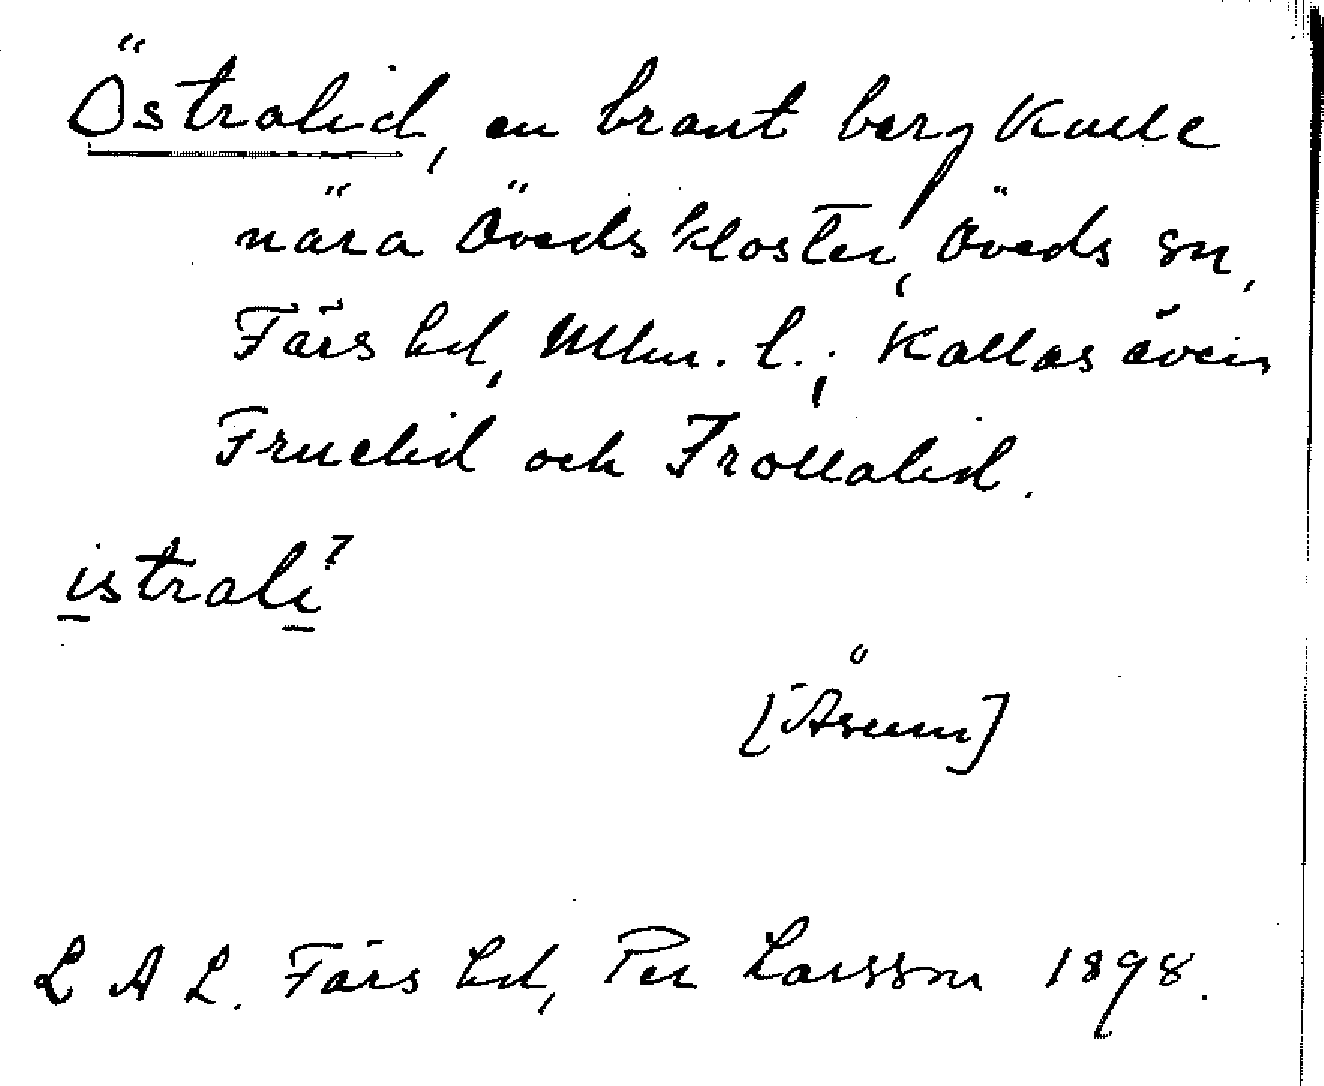 Östralid, en brant berg Kulle
nära Öveds kloster, Öveds sn,
Färs hd, Mlm. l.; Kallas även
Fruelid och Trollalid.
istrali?
[Åsum]
L A L. Färs hd, Per Larsson 1898.